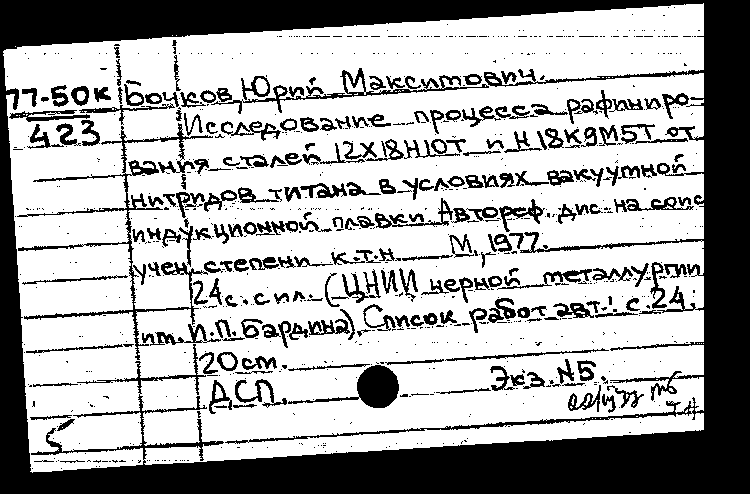 77-50к Бочков, Юрий Максимович.
423 Исследование процесса рафиниро-
вания сталей 12Х18Н10Т и Н18К9М5Т от
нитридов титана в условиях вакуумной
индукционной плавки. Автореф. дис. на соис
учен. степени к.т.н М., 1977.
24 с. с ил. (ЦНИИ черной металлургии
им. И.П. Бардина). Список работ авт.: с. 24.
20 см.
ДСП. Экз. N5.
5